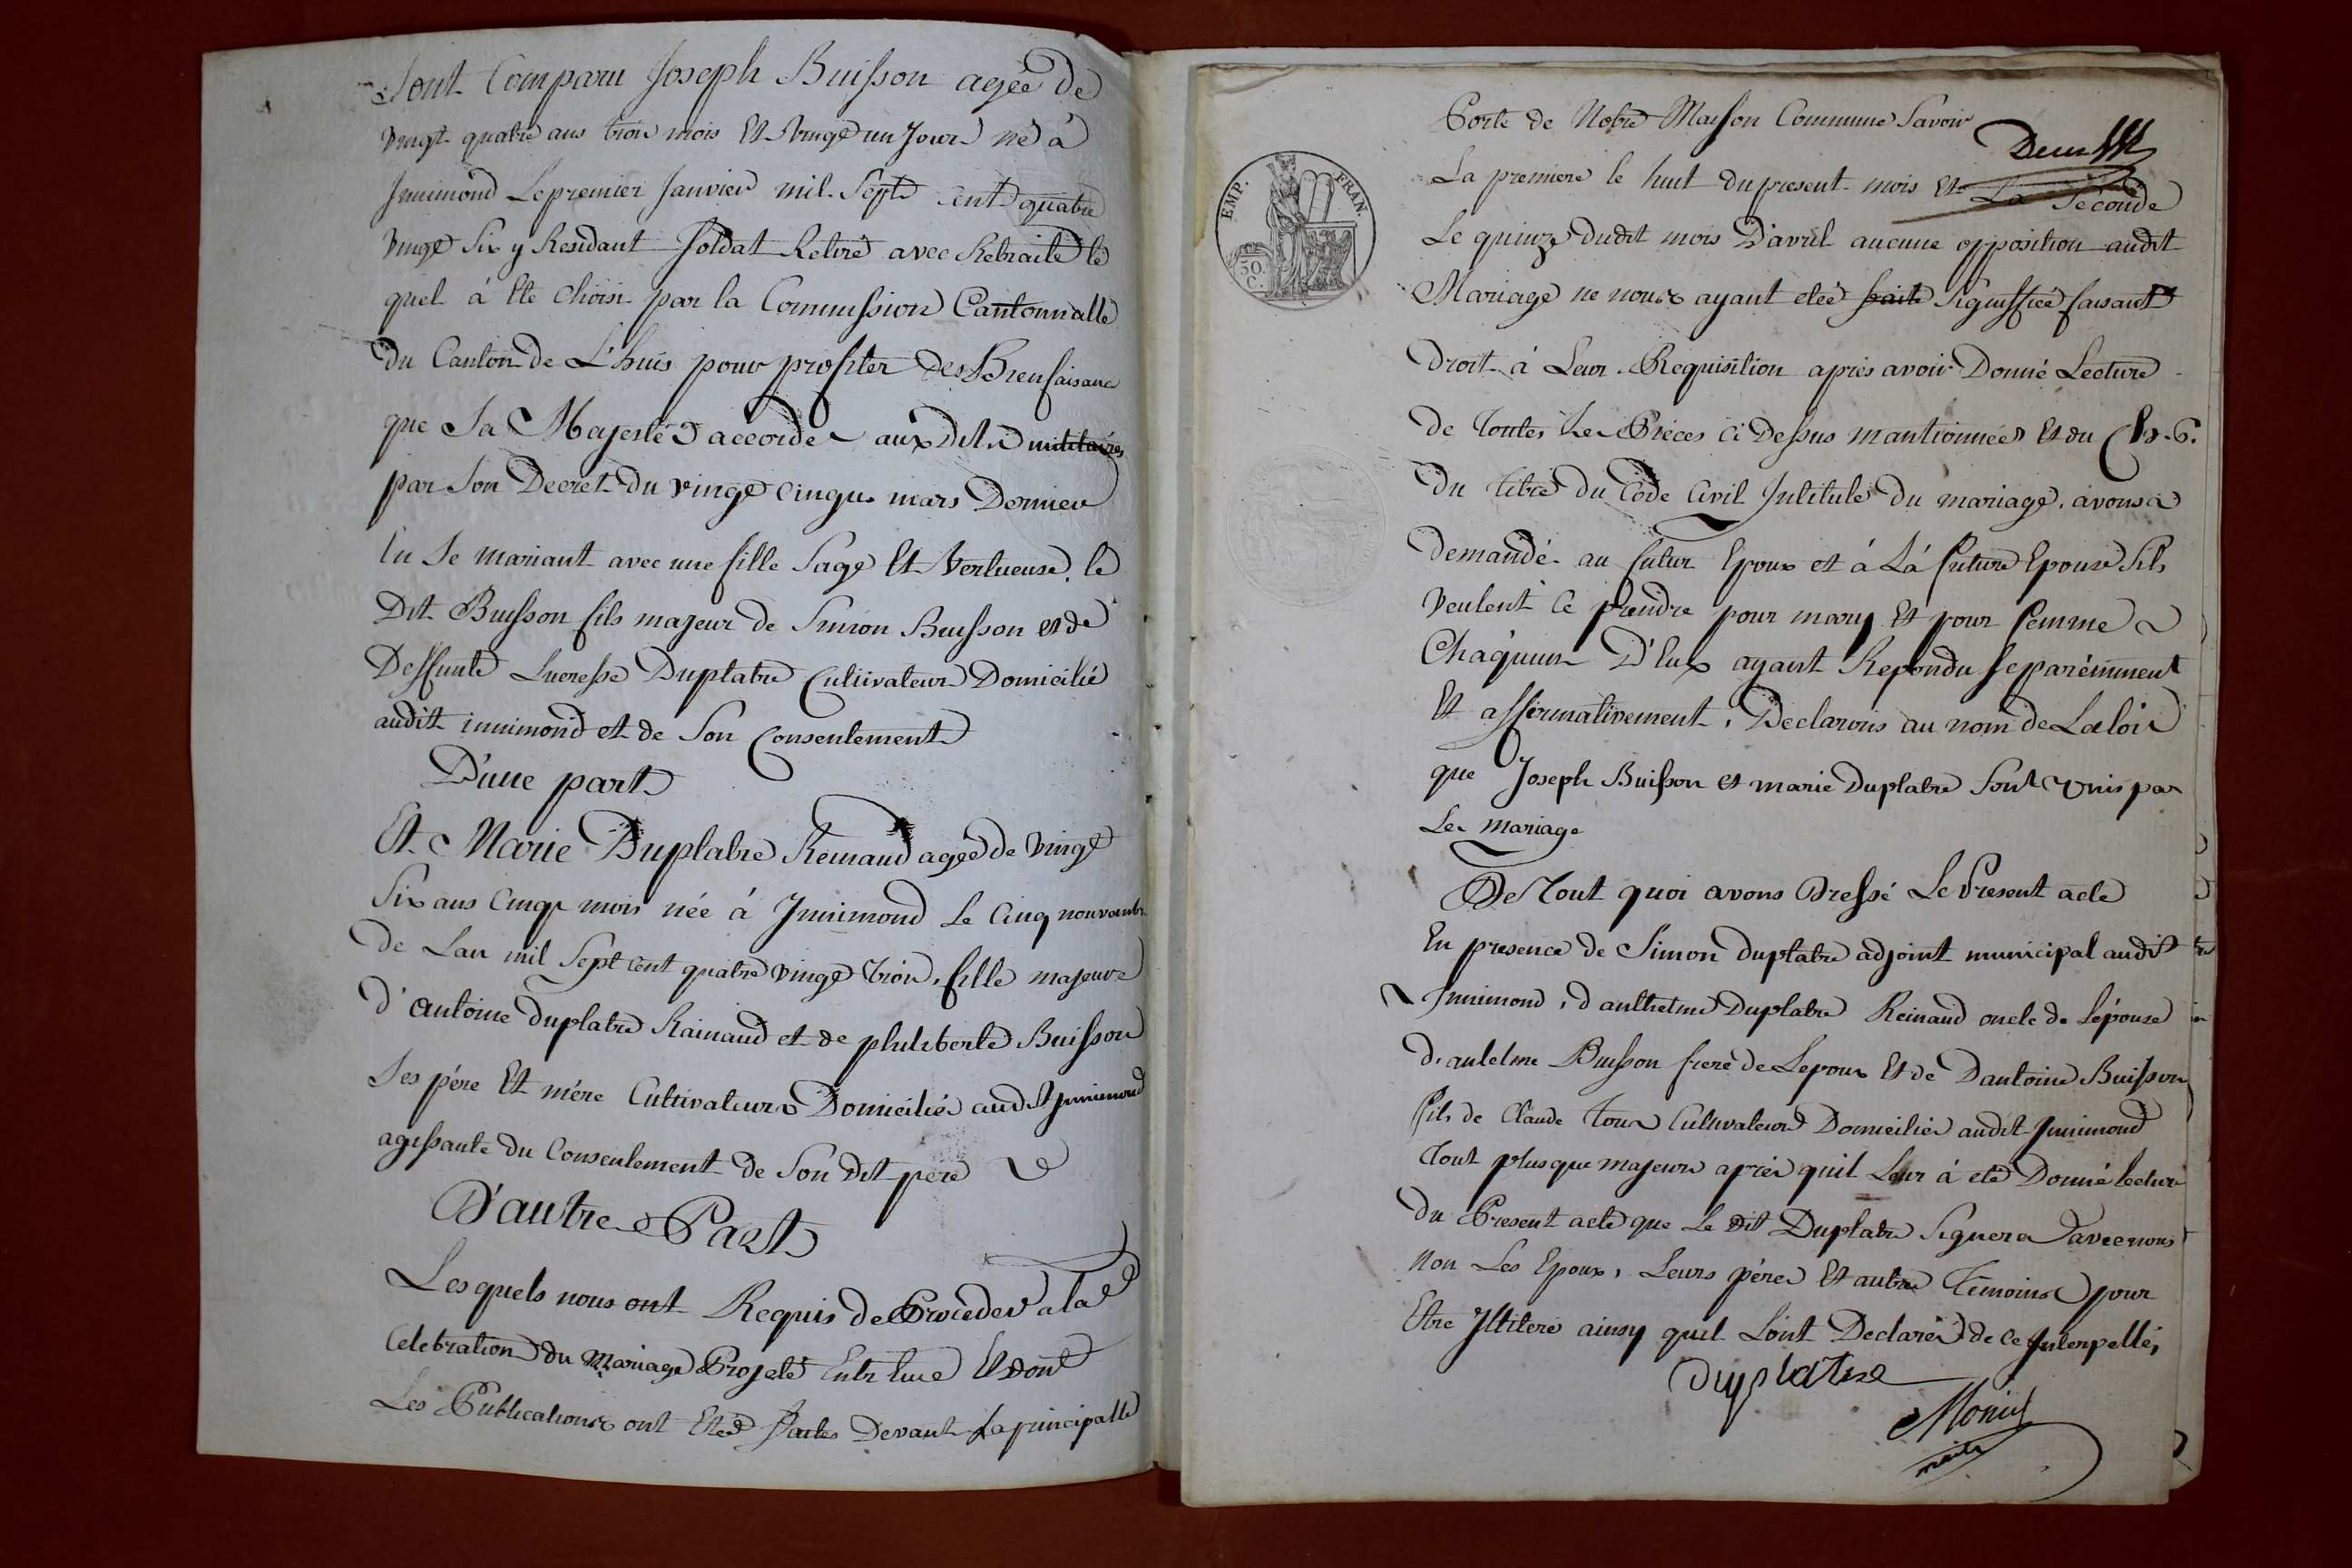 Sont Comparu Joseph Buisson agée de
vingt quatre ans trois mois Et vingt un Jour né à
Innimond Le premier Janvier mil Sept cent quatre
vingt Six y Residant Soldat Retiré avec Retraite le
quel à Eté choisi par la Commission Cantonnalle
du Canton de L'huis pour profiter des Bienfaisance
que Sa Majesté accorde aux dits militaires
par Son Decret du vingt cinque mars Dernier
En Se mariant avec une fille Sage Et Vertueuse, le
Dit Buisson fils majeur de Simon Buisson et de
Deffunte Lucresse Duplatre Cultivateur Domicilié
audit innimond et de Son Consentement
D'une part
Et Marie Duplatre Reinaud agée de vingt
Six ans Cinq mois née à Innimond Le Cinq nouvembre
de Lan mil Sept cent quatre vingt trois, fille majeure
d'antoine Duplatre Rainaud et de philiberte Buisson
Ses pére Et mére Cultivateurs Domiciliés audit Innimond
agissante du Consentement de Son dit pere
D'autre Part
Lesquels nous ont Requis de Proceder a la
Celebration du Mariage Projeté Entr Eux Et dont
Les Publications ont Etéé faites Devant La principalle
Porte de Notre Maison Commune Savoir
La premiere le huit du present mois Et La Seconde
Le quinze dudit mois D'avril aucune opposition audit
Mariage ne nous ayant etéé faite Signiffiée faisant
droit à Leur Requisition aprés avoir Donné Lecture
de toutes Les Piéces ci Dessus mantionnées Et du Ch. 6.
du titre du Code Civil Intitulé Du mariage, avons
demandé au futur Epoux et á Lá future Epouse S'ils
veulent Ce prendre pour mary Et pour femme
Chaquun D'Eux ayant Repondu Sepparémment
Et affirmativement, Declarons au nom de La loi
que Joseph Buisson et marie Duplatre Sont Unis par
Le mariage
De Tout quoi avons Dressé Le Present acte
En presence de Simon Duplatre adjoint municipal audit
Innimond, d anthelme Duplatre Reinaud oncle de Lépouse
d'antelme Buisson frere de Lepoux Et de Dantoine Buisson
fils de Claude tous Cultivateurs Domiciliés audit Innimond
Tout plus que majeurs aprés quil Leur à eté Donné lecture
du Present acte que Le dit Duplatre Signera avec nous
Non Les Epoux, Leurs péres Et autres Témoins pour
Etre Illiteré ainsy quil Lont Declarés de ce Interpellés
Duplatre
maire
EMP. FRAN.
50. C.